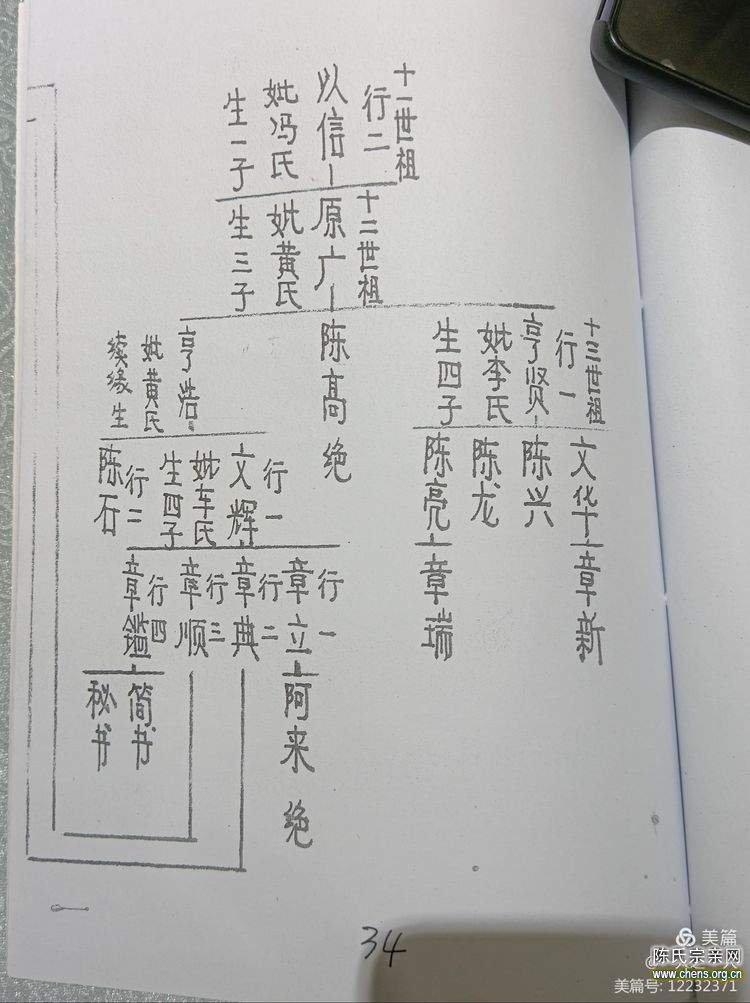 十一世祖
行二
以信
妣冯氏
生一子
十二世祖
原广
妣黄氏
生三子
十三世祖
行一
亨贤
妣李氏
生四子
陈高 绝
亨浩
妣黄氏
续缘生
文华
陈兴
陈龙
陈亮
行一
文辉
妣车氏
生四子
行二
陈石
章新
章瑞
行一
章立
行二
章典
行三
章顺
行四
章鑑
阿来 绝
简书
秘书
34
美篇
陈氏宗亲网
www.chens.org.cn
美篇号: 12232371